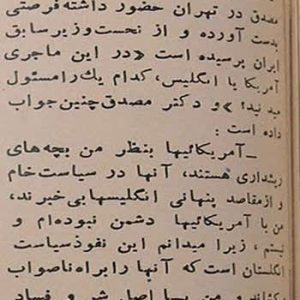 مصدق در تهران حضور داشته فرصتی
بدست آورده و از نخست وزیر سابق
ایران پرسیده است «در این ماجری
آمریکا یا انگلیس، کدام یک را مسئول
میدانید؟» و دکتر مصدق چنین جواب
داده است:
ـ آمریکائیها بنظر من بچه های
ریشداری هستند، آنها در سیاست خام
و از مقاصد پنهانی انگلیسها بی خبرند،
من با آمریکائیها دشمن نبوده ام و
نیستم، زیرا میدانم این نفوذ سیاست
انگلستان است که آنها را براه ناصواب
میکشاند و من با اصل شر و فساد